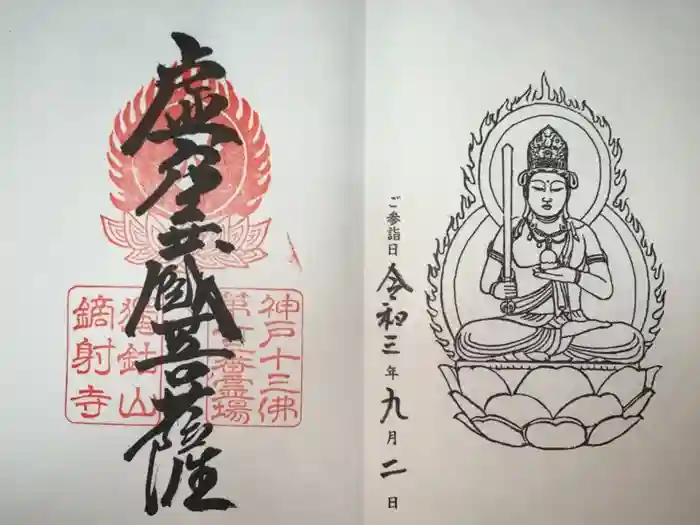 虚空蔵菩薩
神戸十三佛
第十三番霊場
鏑射寺
ご参詣日 令和三年九月二日